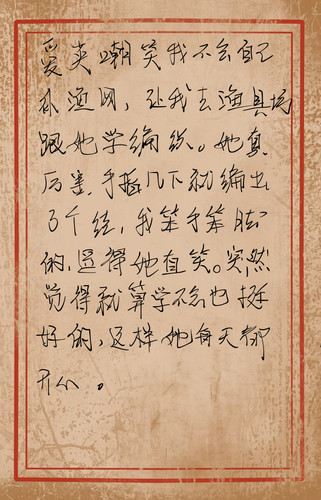 爱夹嘲笑我不会自己
补渔网，让我去渔具坊
跟她学编织。她真
厉害，手指几下就编出
了个结，我笨手笨脚
的，逗得她直笑。突然
觉得就算学不会也挺
好的，这样她每天都
开心。